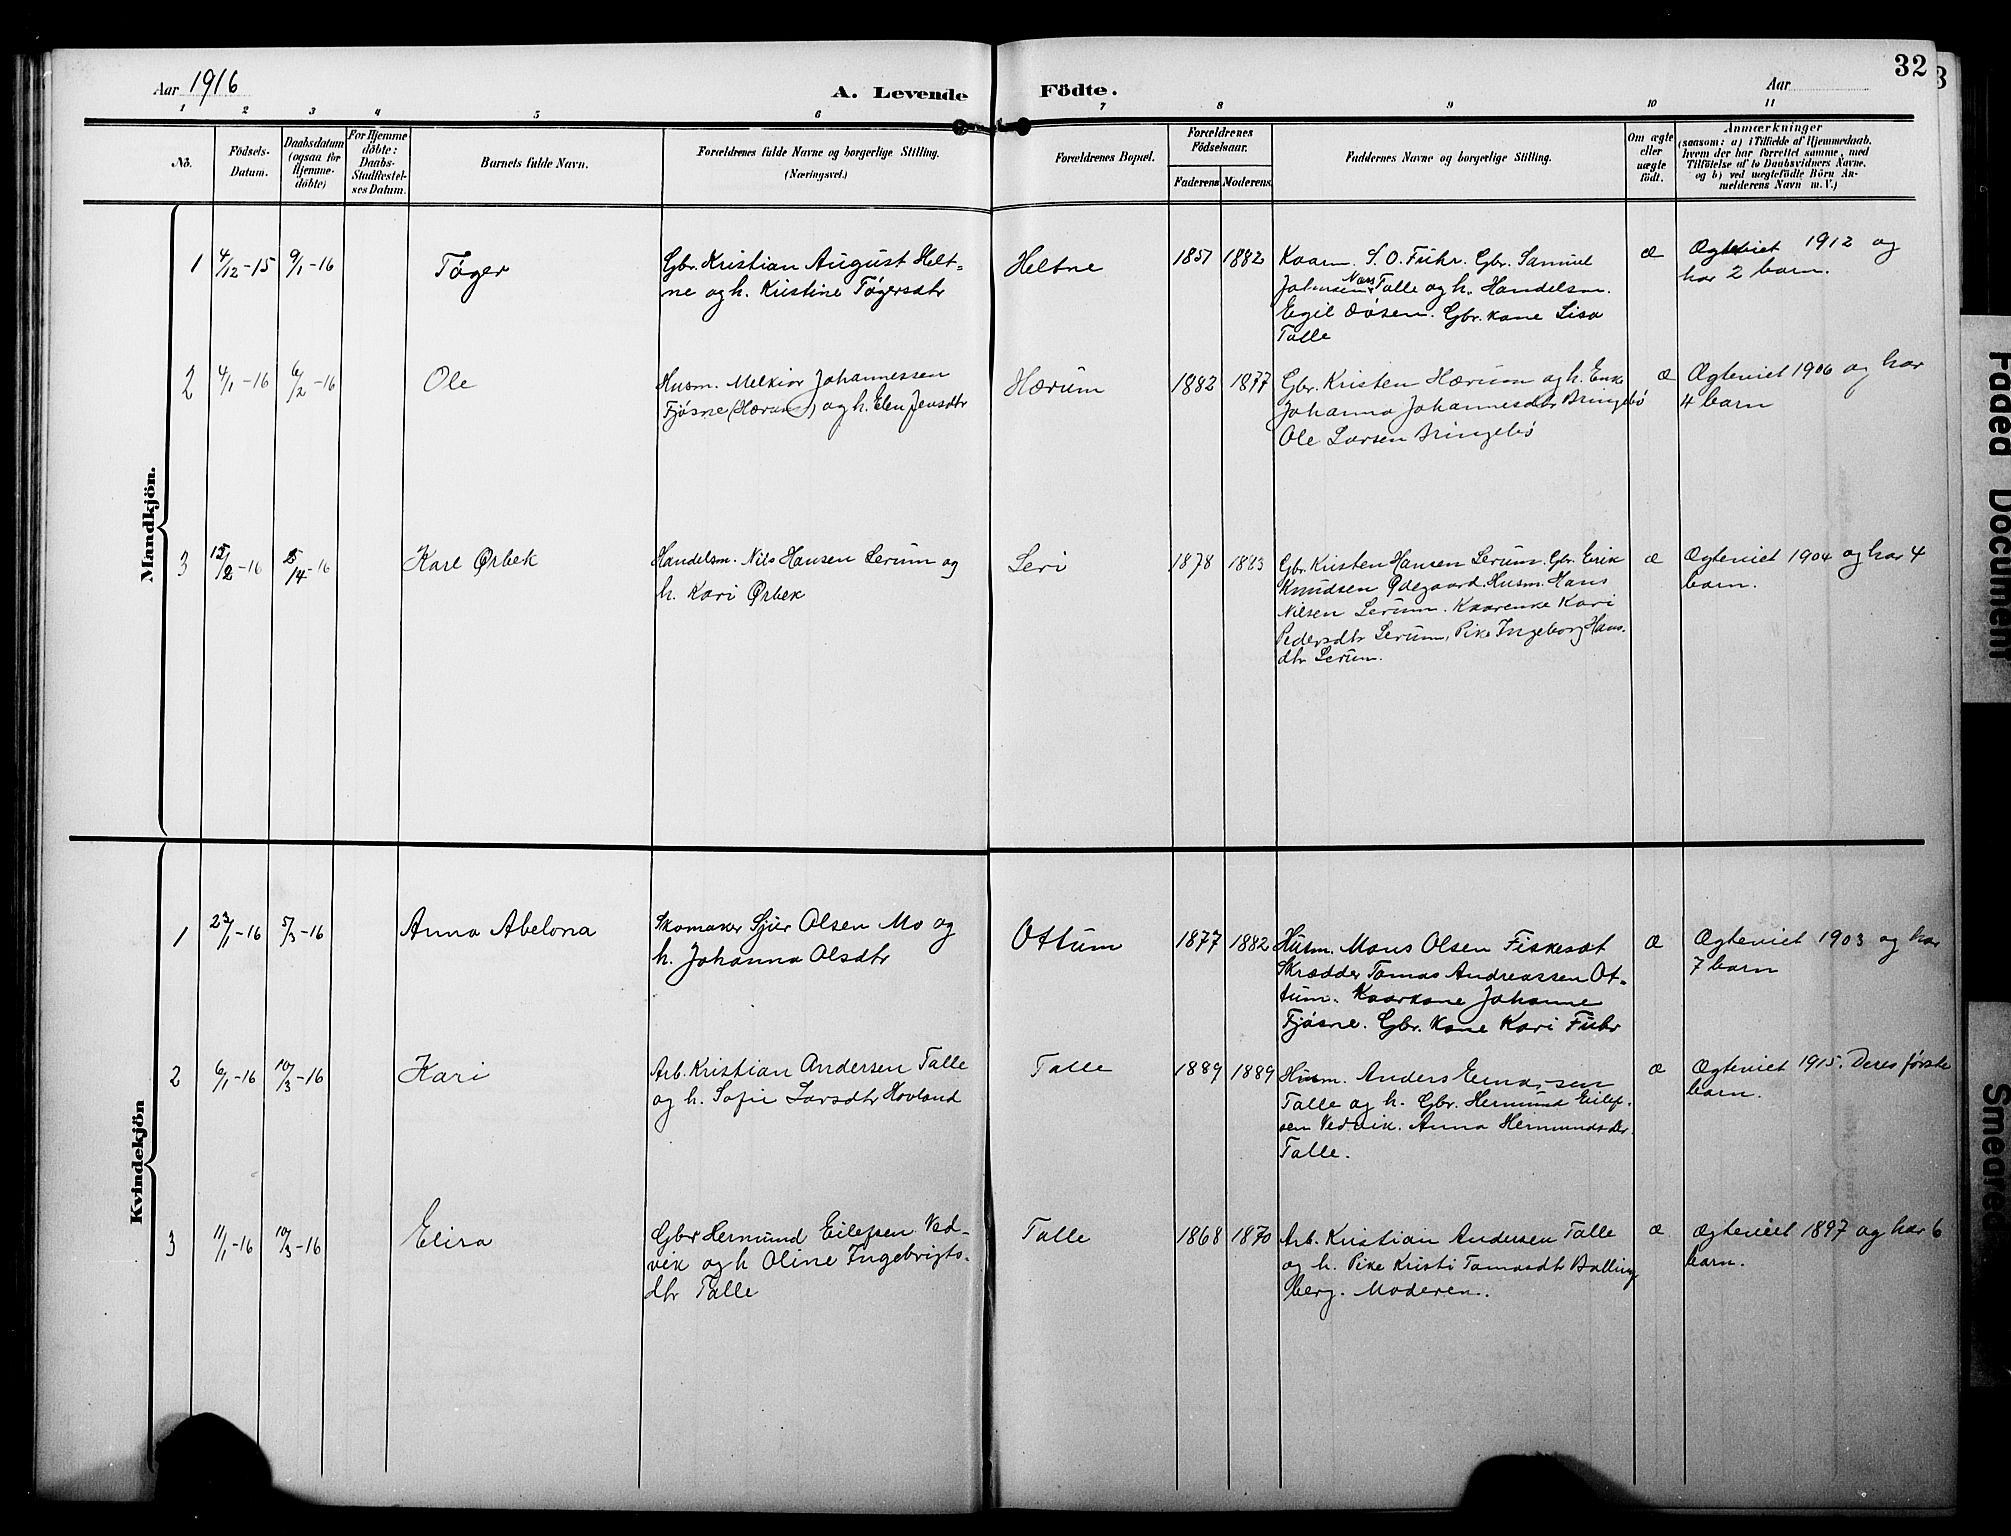 Aar 1916
A. Levende Födte.
Aar
32
1 2 3 4 5 6 7 8 9 10 11
No.
Födsels-
Datum.
Daabsdatum
(ogsaa for
Hjemme-
döbte)
For Hjemme
döbte:
Daabs-
Stadfæstel-
ses Datum.
Barnets fulde Navn.
Forældrenes fulde Navne og borgerlige Stilling.
(Næringsvei.)
Forældrenes Bopæl.
Forældrenes
Födselsaar.
Faderens Moderens.
Faddernes Navne og borgerlige Stilling.
Om ægte
eller
uægte
födt.
Anmærkninger
(saasom: a) i Tilfælde af Hjemmedaab,
hvem der har forrettet samme, med
Tilföielse af to Daabsvidners Navne,
og b) ved uægtefödte Börn An-
melderens Navn m. V.)
Mandkjön.
1 4/12-15 9/1-16 Tøger
Gbr. Kristian August Helt-
ne og h. Kristine Tøgersdtr
Heltne
1857 1882
Kaarm. S. O. Fuhr. Gbr. Samuel
Johnsen Næss Talle og h. Handelsm.
Eigil Døsen. Gbr. kone Lisa
Talle
æ
Ægteviet 1912 og
har 2 barn.
2 4/1-16 6/2-16 Ole
Husm. Melkior Johannessen
Fjøsne (Hærum) og h. Elen Jensdtr
Hærum
1882 1877
Gbr. Kristen Hærum og h. Enke
Johanna Johannesdtr Bringebø
Ole Larsen Bringebø
æ
Ægteviet 1906 og har
4 barn
3 15/2-16 25/4-16 Karl Ørbek
Handelsm. Nils Hansen Lerum og
h. Kari Ørbek
Leri
1878 1883
Gbr. Kristen Hansen Lerum. Gbr. Eirik
Knudsen Ødegaard. Husm. Hans
Nilsen Lerum. Kaarenke Kari
Pedersdtr Lerum, Pike Ingeborg Hans-
dtr Lerum.
æ
Ægteviet 1904 og har 4
barn.
Kvindekjön
1 23/1-16 5/3-16 Anna Abelona
Skomaker Sjur Olsen Mo og
h. Johanna Olsdtr
Ottum
1877 1882
Husm. Mons Olsen Fiskesæt
Skrædder Tomas Andreassen Ot-
tum. Kaarkone Johanne
Fjøsne. Gbr. kone Kari Fuhr
æ
Ægteviet 1903 og har
7 barn
2 6/1-16 10/3-16 Kari
Arb. Kristian Andersen Talle
og h. Sofie Larsdtr Hovland
Talle
1889 1889
Husm. Anders Einarsen
Talle og h. Gbr. Hermund Eilef-
sen Vedvik. Anna Hermundsdtr.
Talle.
æ
Ægteviet 1915. Deres første
barn.
3 11/1-16 10/3-16 Elira
Gbr Hermund Eilefsen Ved-
vik og h Oline Ingebrigts-
dtr Talle
Talle
1868 1870
Arb. Kristian Andersen Talle
og h. Pike Kristi Tomasdtr Balling
berg. Moderen.
æ
Ægteviet 1897 og har 6
barn.
Faded Document
Smeared